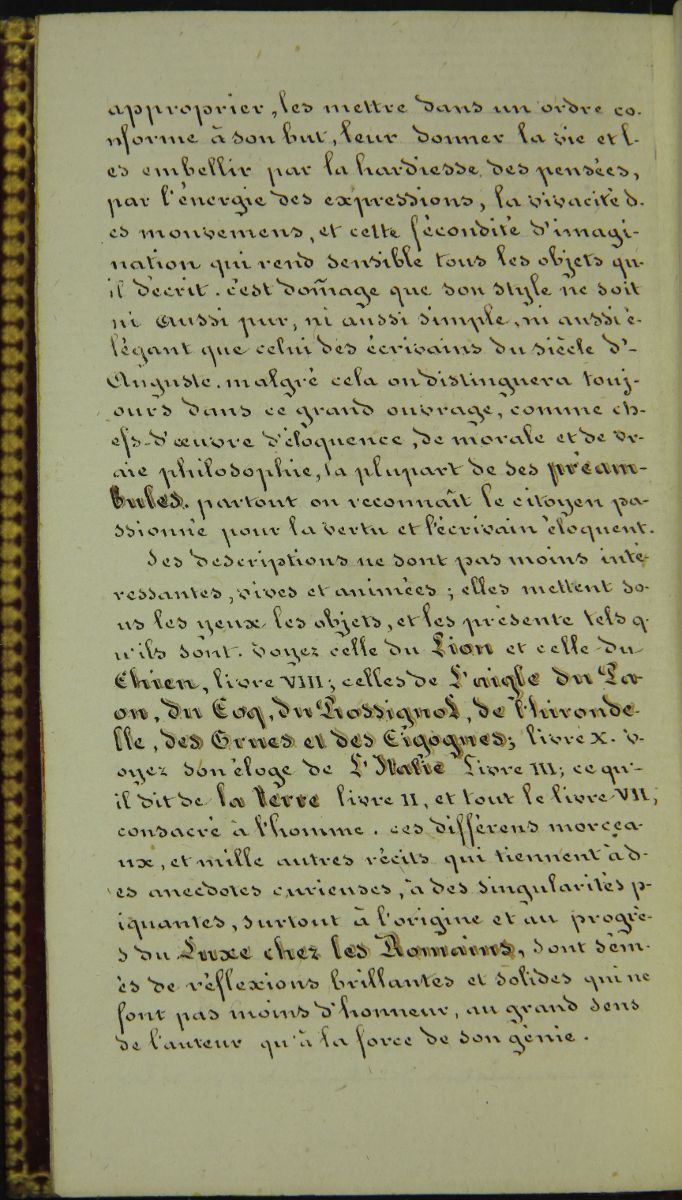 approprier, les mettre dans un ordre co-
nforme à son but, leur donner la vie et l-
es embellir par la hardiesse des pensées,
par l'énergie des expressions, la vivacité d-
es mouvemens, et cette fécondité d'imagi-
nation qui rend sensible tous les objets qu-
il décrit. c'est dom̃age que son style ne soit
ni aussi pur, ni aussi simple, ni aussi é-
légant que celui des écrivains du siècle d'-
Auguste. malgré cela on distinguera touj-
ours dans ce grand ouvrage, comme ch-
efs-d'œuvre d'éloquence, de morale et de vr-
aie philosophie, la plupart de ses préam-
bules. partout on reconnaît le citoyen pa-
ssionné pour la vertu et l'écrivain éloquent.
Ses descriptions ne sont pas moins inté-
ressantes, vives et animées; elles mettent so-
us les yeux les objets, et les présente tels q-
u'ils sont. voyez celle du Lion et celle du
Chien, livre VIII; celles de L'aigle du Pa-
on, du Coq, du Rossignol, de l'hironde-
lle, des Grues et des Cigognes; livre X. v-
oyez son éloge de L'Italie livre III; ce qu-
il dit de la Terre livre II, et tout le livre VII,
consacré à l'homme. ces différens morcea-
ux, et mille autres récits qui tiennent à d-
es anecdotes curieuses, à des singularités p-
iquantes, surtout à l'origine et au progrè-
s du Luxe chez les Romains, sont sém-
és de réflexions brillantes et solides qui ne
font pas moins d'honneur, au grand sens
de l'auteur qu'à la force de son génie.